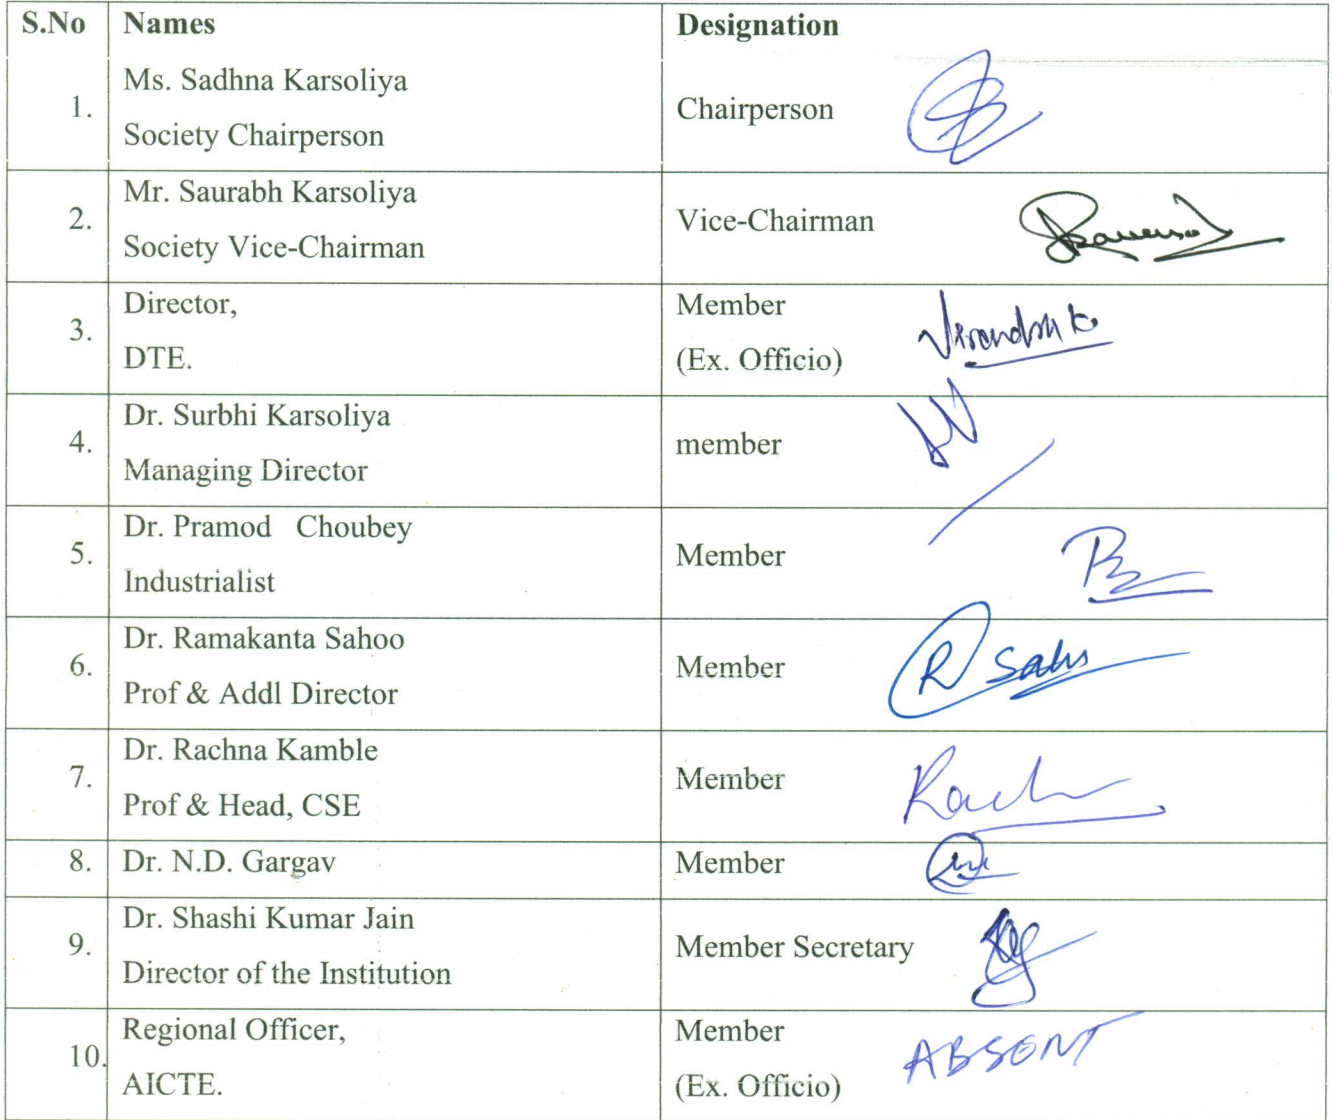 S.No Names Designation
1. Ms. Sadhna Karsoliya
Society Chairperson
Chairperson
2. Mr. Saurabh Karsoliya
Society Vice-Chairman
Vice-Chairman
3. Director,
DTE.
Member
(Ex. Officio)
4. Dr. Surbhi Karsoliya
Managing Director
member
5. Dr. Pramod Choubey
Industrialist
Member
6. Dr. Ramakanta Sahoo
Prof & Addl Director
Member
R
7. Dr. Rachna Kamble
Prof & Head, CSE
Member
8. Dr. N.D. Gargav
Member
9. Dr. Shashi Kumar Jain
Director of the Institution
Member Secretary
10. Regional Officer,
AICTE.
Member
(Ex. Officio)
ABSENT